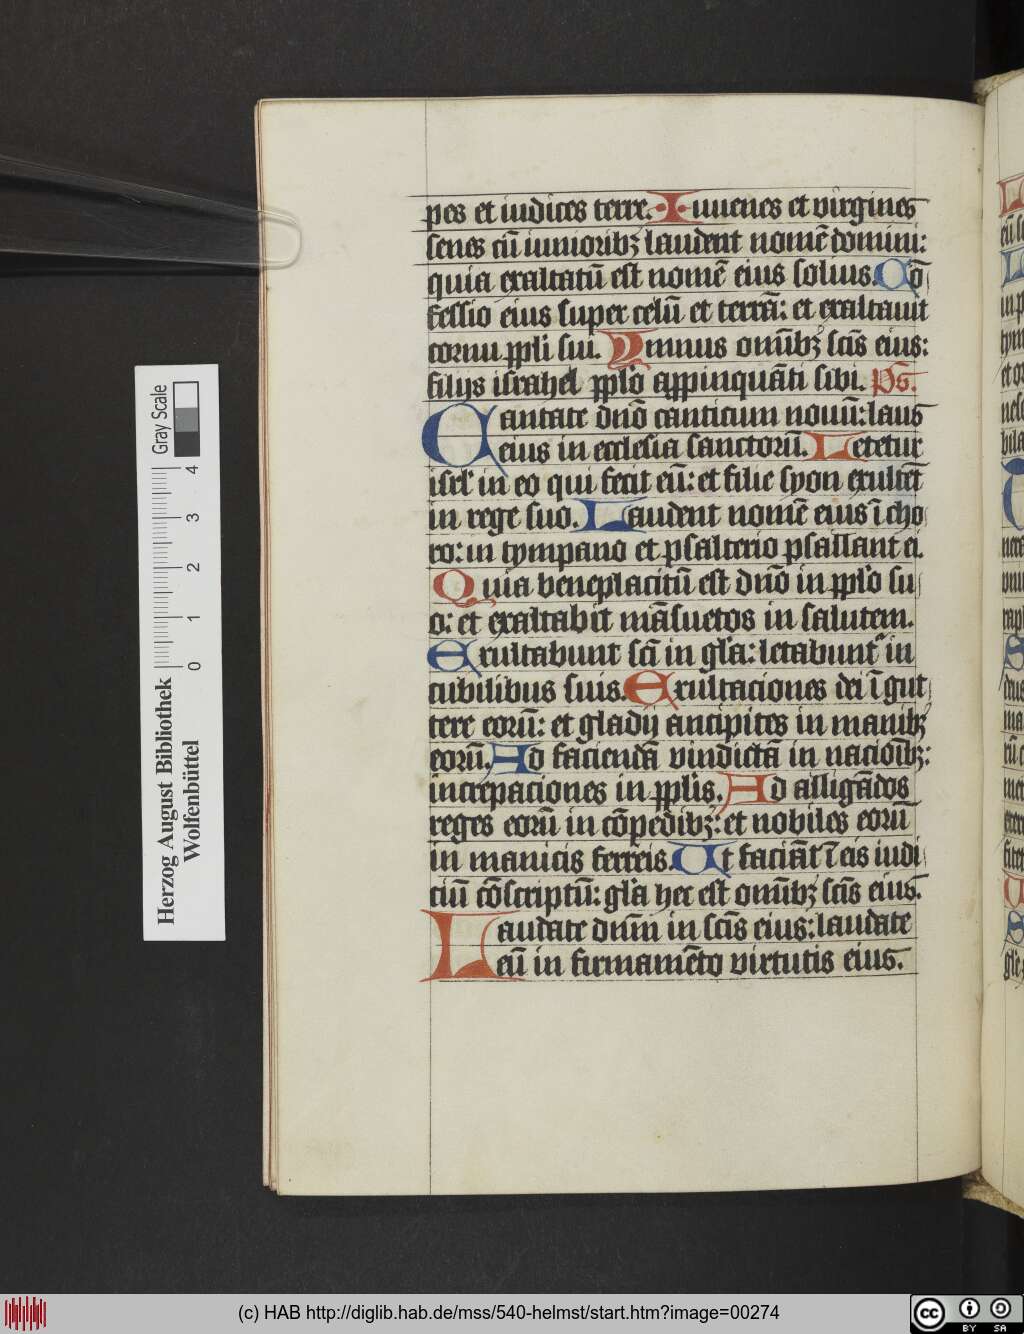 pes et iudices terre. Iuuenes et virgines
senes cū iunioribꝫ laudent nomē domini:
quia exaltatū est nomē eius solius. Cō
fessio eius super celū et terrā: et exaltauit
cornu ppli sui. Ymnus omībꝫ scīs eius:
filijs israhel pplo appinquāti sibi. Ps̄.
Cantate dnō canticum nouū: laus
eius in ecclesia sanctorū. Letetur
isrl' in eo qui fecit eū: et filie syon exultēt
in rege suo. Laudent nomē eius ī cho
ro: in tympano et psalterio psallant ei.
Quia beneplacitū est dnō in pplo su
o: et exaltabit māsuetos in salutem.
Exultabunt scī in gl'a: letabunt' in
cubilibus suis. Exultaciones dei ī gut
ture eorū: et gladij ancipites in manibꝫ
eorū. Ad faciendā vindictā in nacioībꝫ:
increpaciones in pplis. Ad alligādos
reges eorū in cōpedibꝫ: et nobiles eorū
in manicis ferreis. Ut faciāt ī eis iudi
ciū cōscriptū: gl'a hec est omībꝫ scīs eius.
Laudate dnm̄ in scīs eius: laudate
eū in firmamēto virtutis eius.
Herzog August Bibliothek
Wolfenbüttel
0 1 2 3 4
Gray Scale
(c) HAB http://diglib.hab.de/mss/540-helmst/start.htm?image=00274
cc BY SA